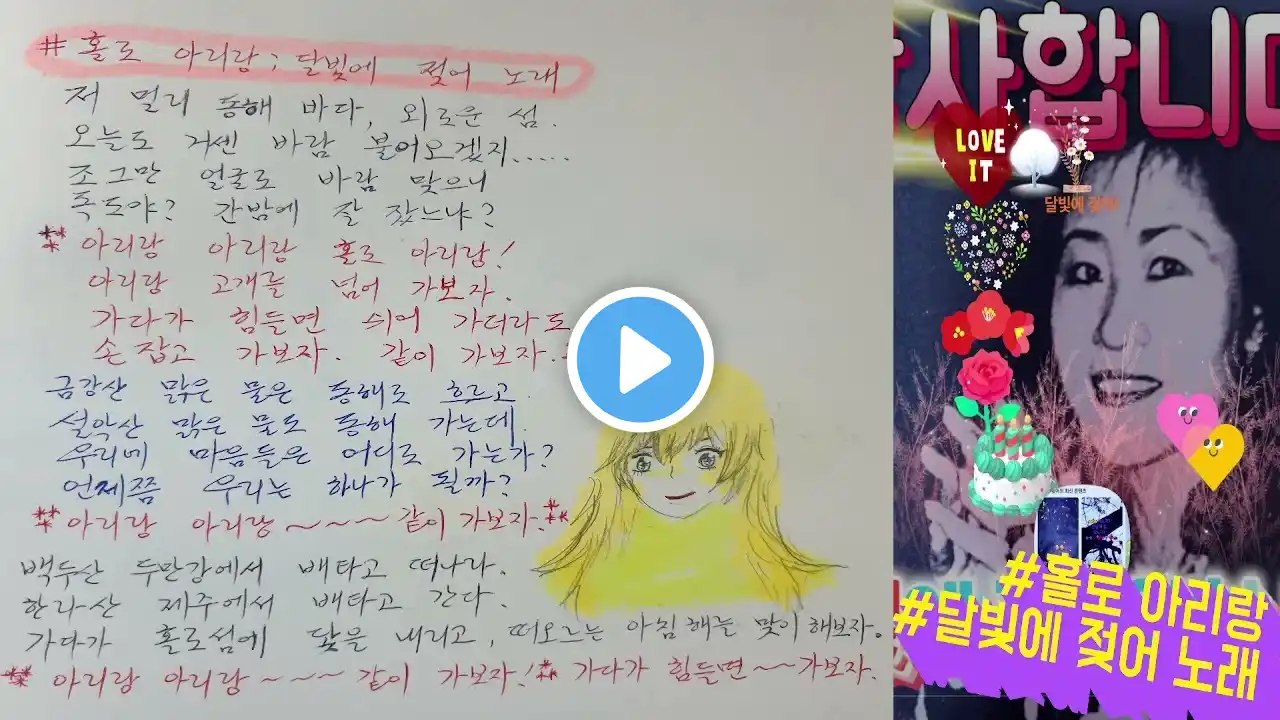 # 홀로 아리랑 ; 달빛에 젖어 노래
저 멀리 동해 바다, 외로운 섬.
오늘도 거센 바람 불어오겠지.....
조그만 얼굴로 바람 맞으니
독도야? 간밤에 잘 잤느냐?
** 아리랑 아리랑 홀로 아리랑!
아리랑 고개를 넘어 가보자.
가다가 힘들면 쉬어 가더라도
손잡고 가보자. 같이 가보자..
금강산 맑은 물은 동해로 흐르고
설악산 맑은 물도 동해 가는데.
우리네 마음들은 어디로 가는가?
언제쯤 우리는 하나가 될까?
** 아리랑 아리랑 ~~~ 같이 가보자. **
백두산 두만강에서 배타고 떠나라.
한라산 제주에서 배타고 간다.
가다가 홀로섬에 닻을 내리고, 떠오르는 아침해를 맞이해보자.
** 아리랑 아리랑 ~~~ 같이 가보자! ** 가다가 힘들면 ~~ 가보자.
사합니다
LOVE
IT
달빛에
#홀로 아리랑
#달빛에 젖어 노래